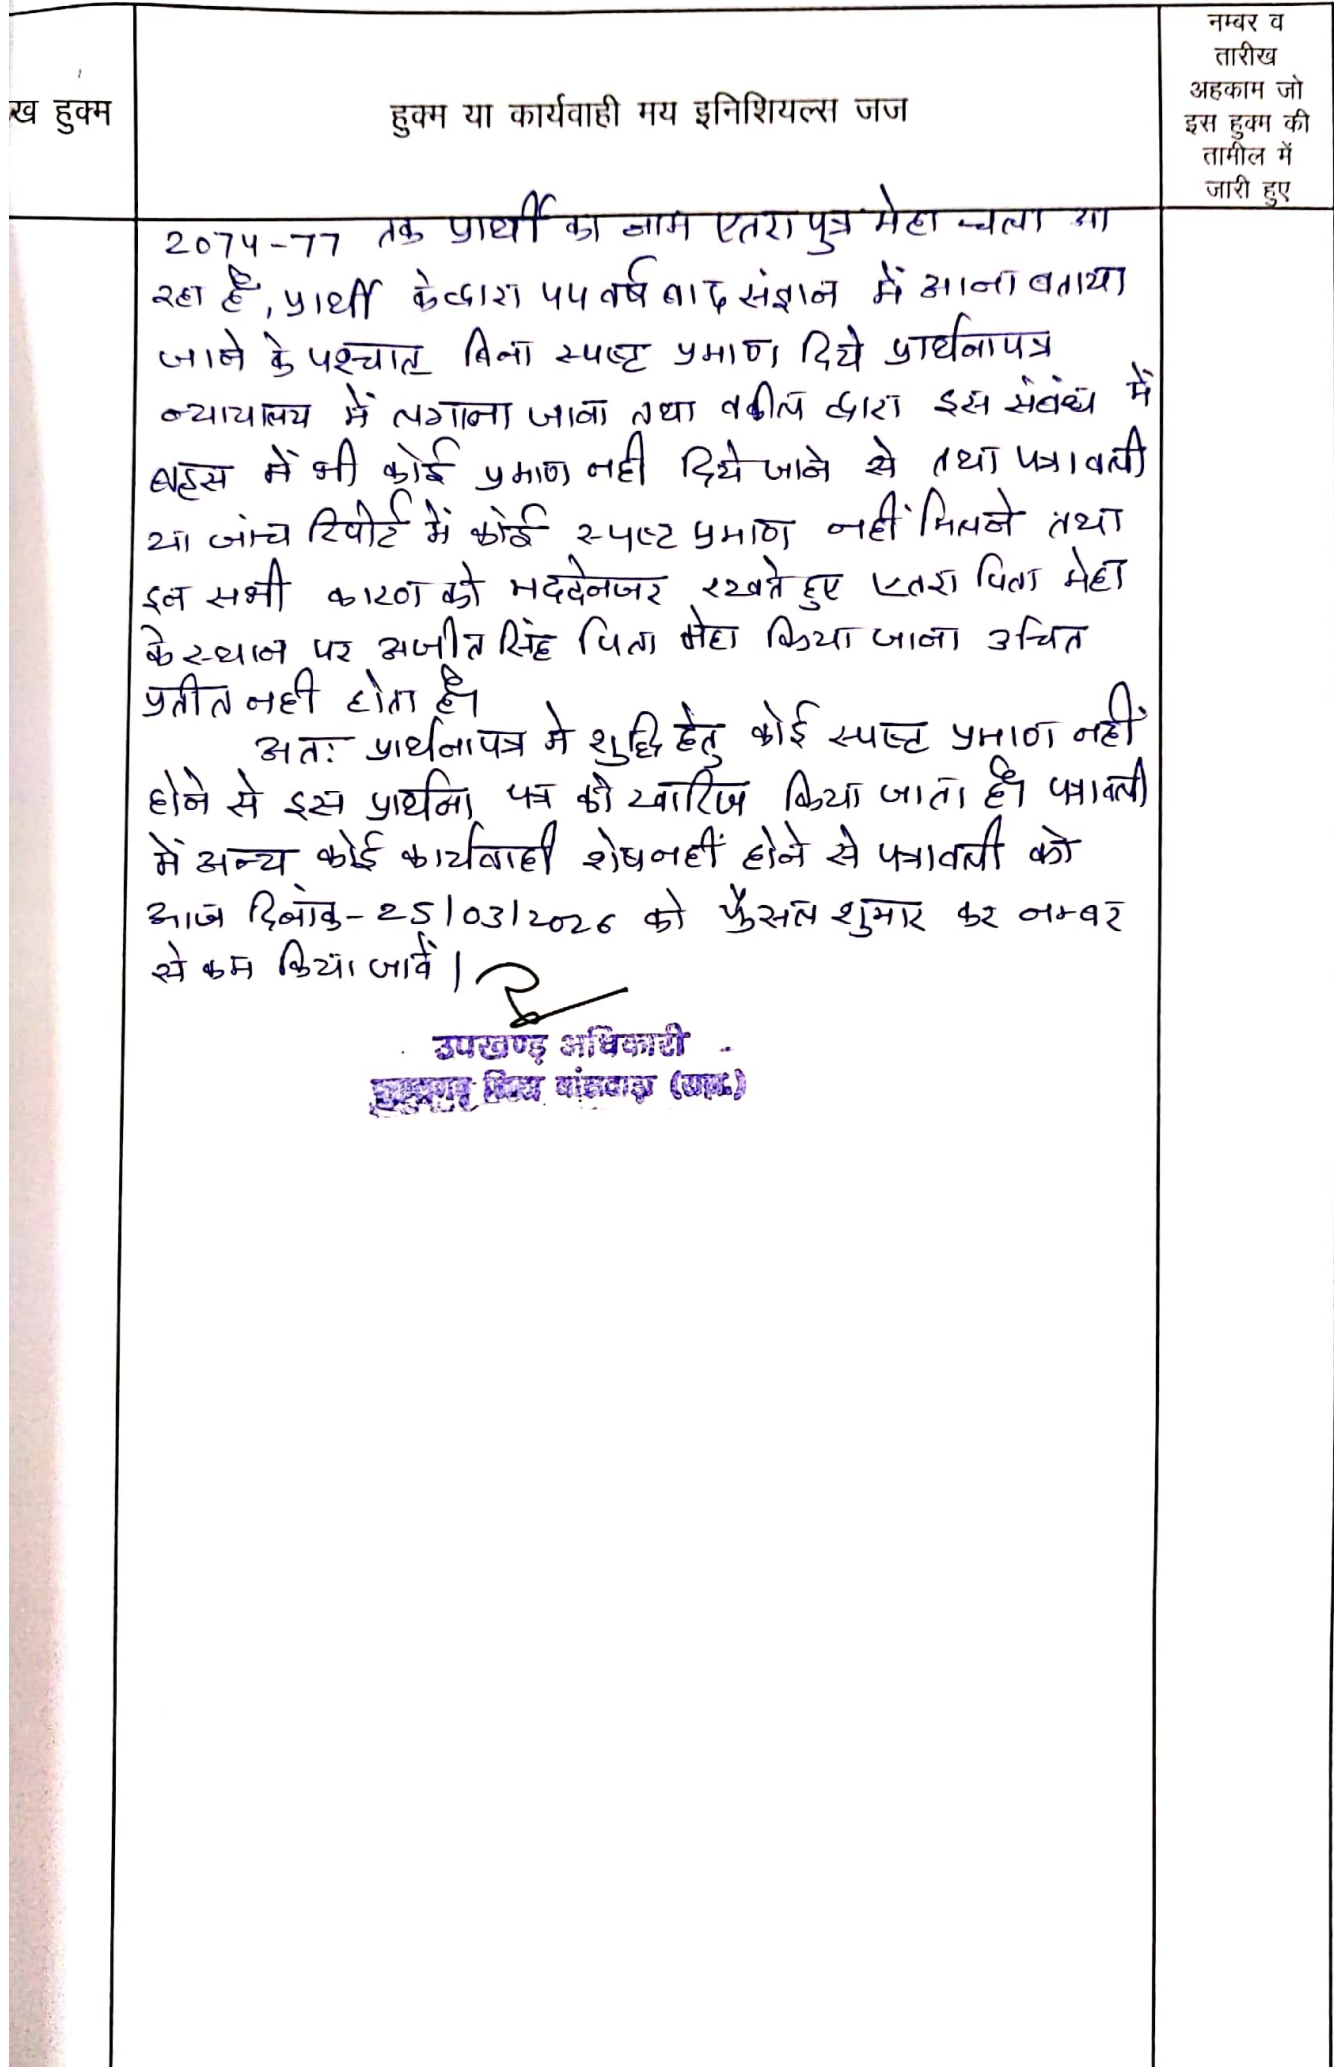 ख हुक्म
हुक्म या कार्यवाही मय इनिशियल्स जज
नम्बर व
तारीख
अहकाम जो
इस हुक्म की
तामील में
जारी हुए
2074-77 तक प्रार्थी का नाम एतरा पुत्र मेहा चला आ
रहा है, प्रार्थी के द्वारा 44 वर्ष बाद संज्ञान में आना बताया
जाने के पश्चात् बिना स्पष्ट प्रमाण दिये प्रार्थनापत्र
न्यायालय में लगाना जाना तथा वकील द्वारा इस संबंध में
बहस में भी कोई प्रमाण नही दिये जाने से तथा पत्रावली
या जांच रिपोर्ट में कोई स्पष्ट प्रमाण नहीं मिलने तथा
इन सभी कारण को मददेनजर रखते हुए एतरा पिता मेहा
के स्थान पर अजीत सिंह पिता मेहा किया जाना उचित
प्रतीत नही होता है।
अतः प्रार्थनापत्र मे शुद्धि हेतु कोई स्पष्ट प्रमाण नहीं
होने से इस प्रार्थना पत्र को खारिज किया जाता है। पत्रावली
में अन्य कोई कार्यवाही शेष नहीं होने से पत्रावली को
आज दिनांक - 25/03/2026 को फैसल शुमार कर नम्बर
से कम किया जावें।
उपखण्ड अधिकारी
बांसवाड़ा (राज.)